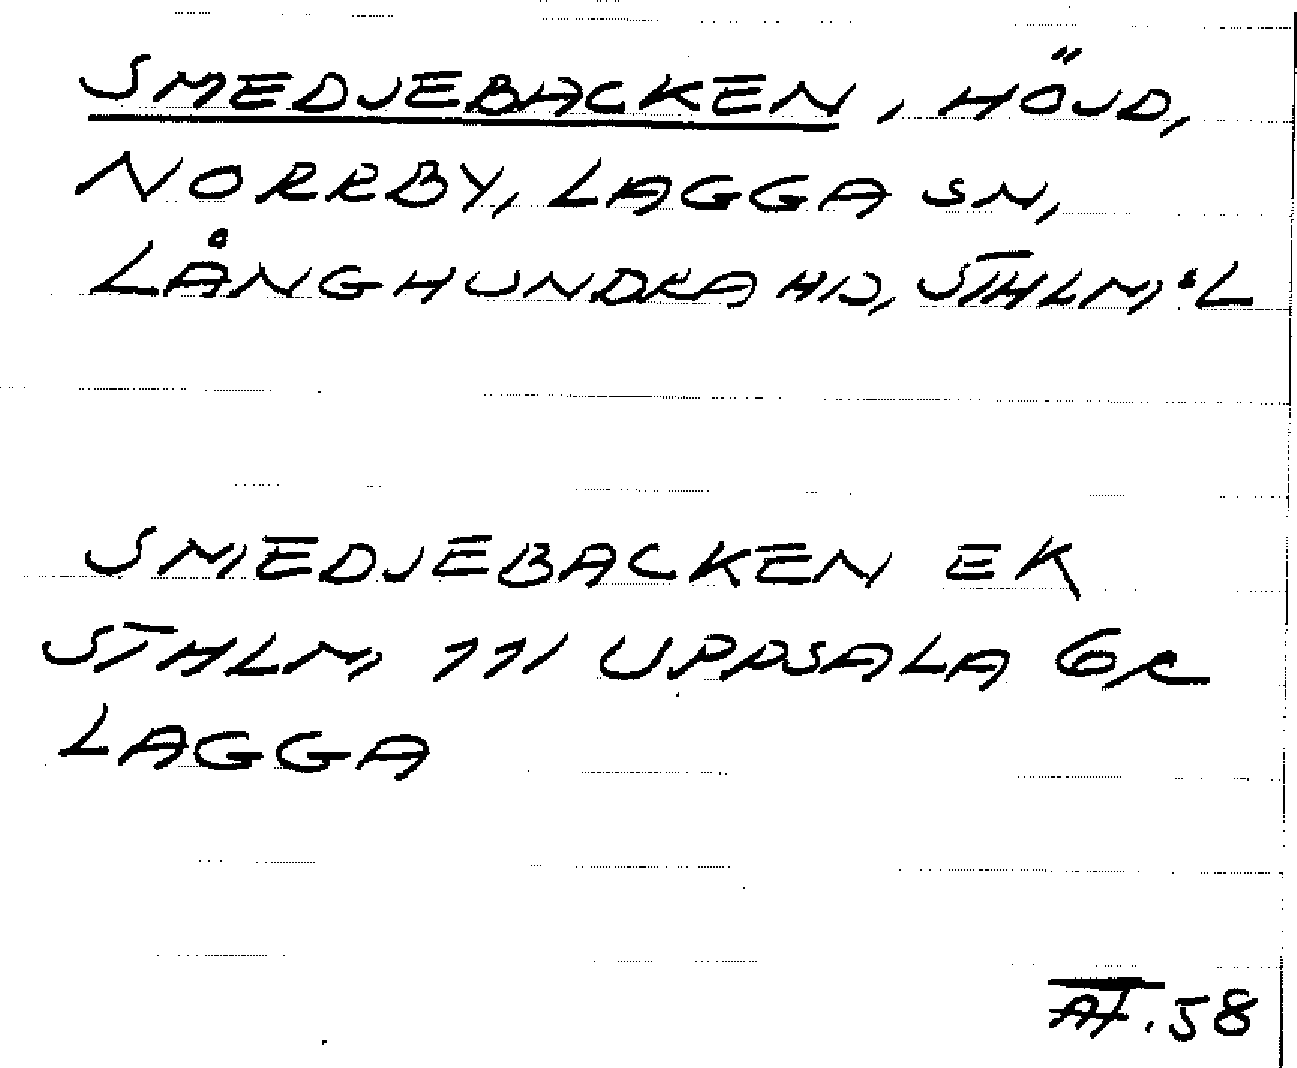 SMEDJEBACKEN, HÖJD,
NORRBY, LAGGA SN,
LÅNGHUNDRA HD, STHLM:L
SMEDJEBACKEN EK
STHLM 111 UPPSALA GR
LAGGA
AF.58